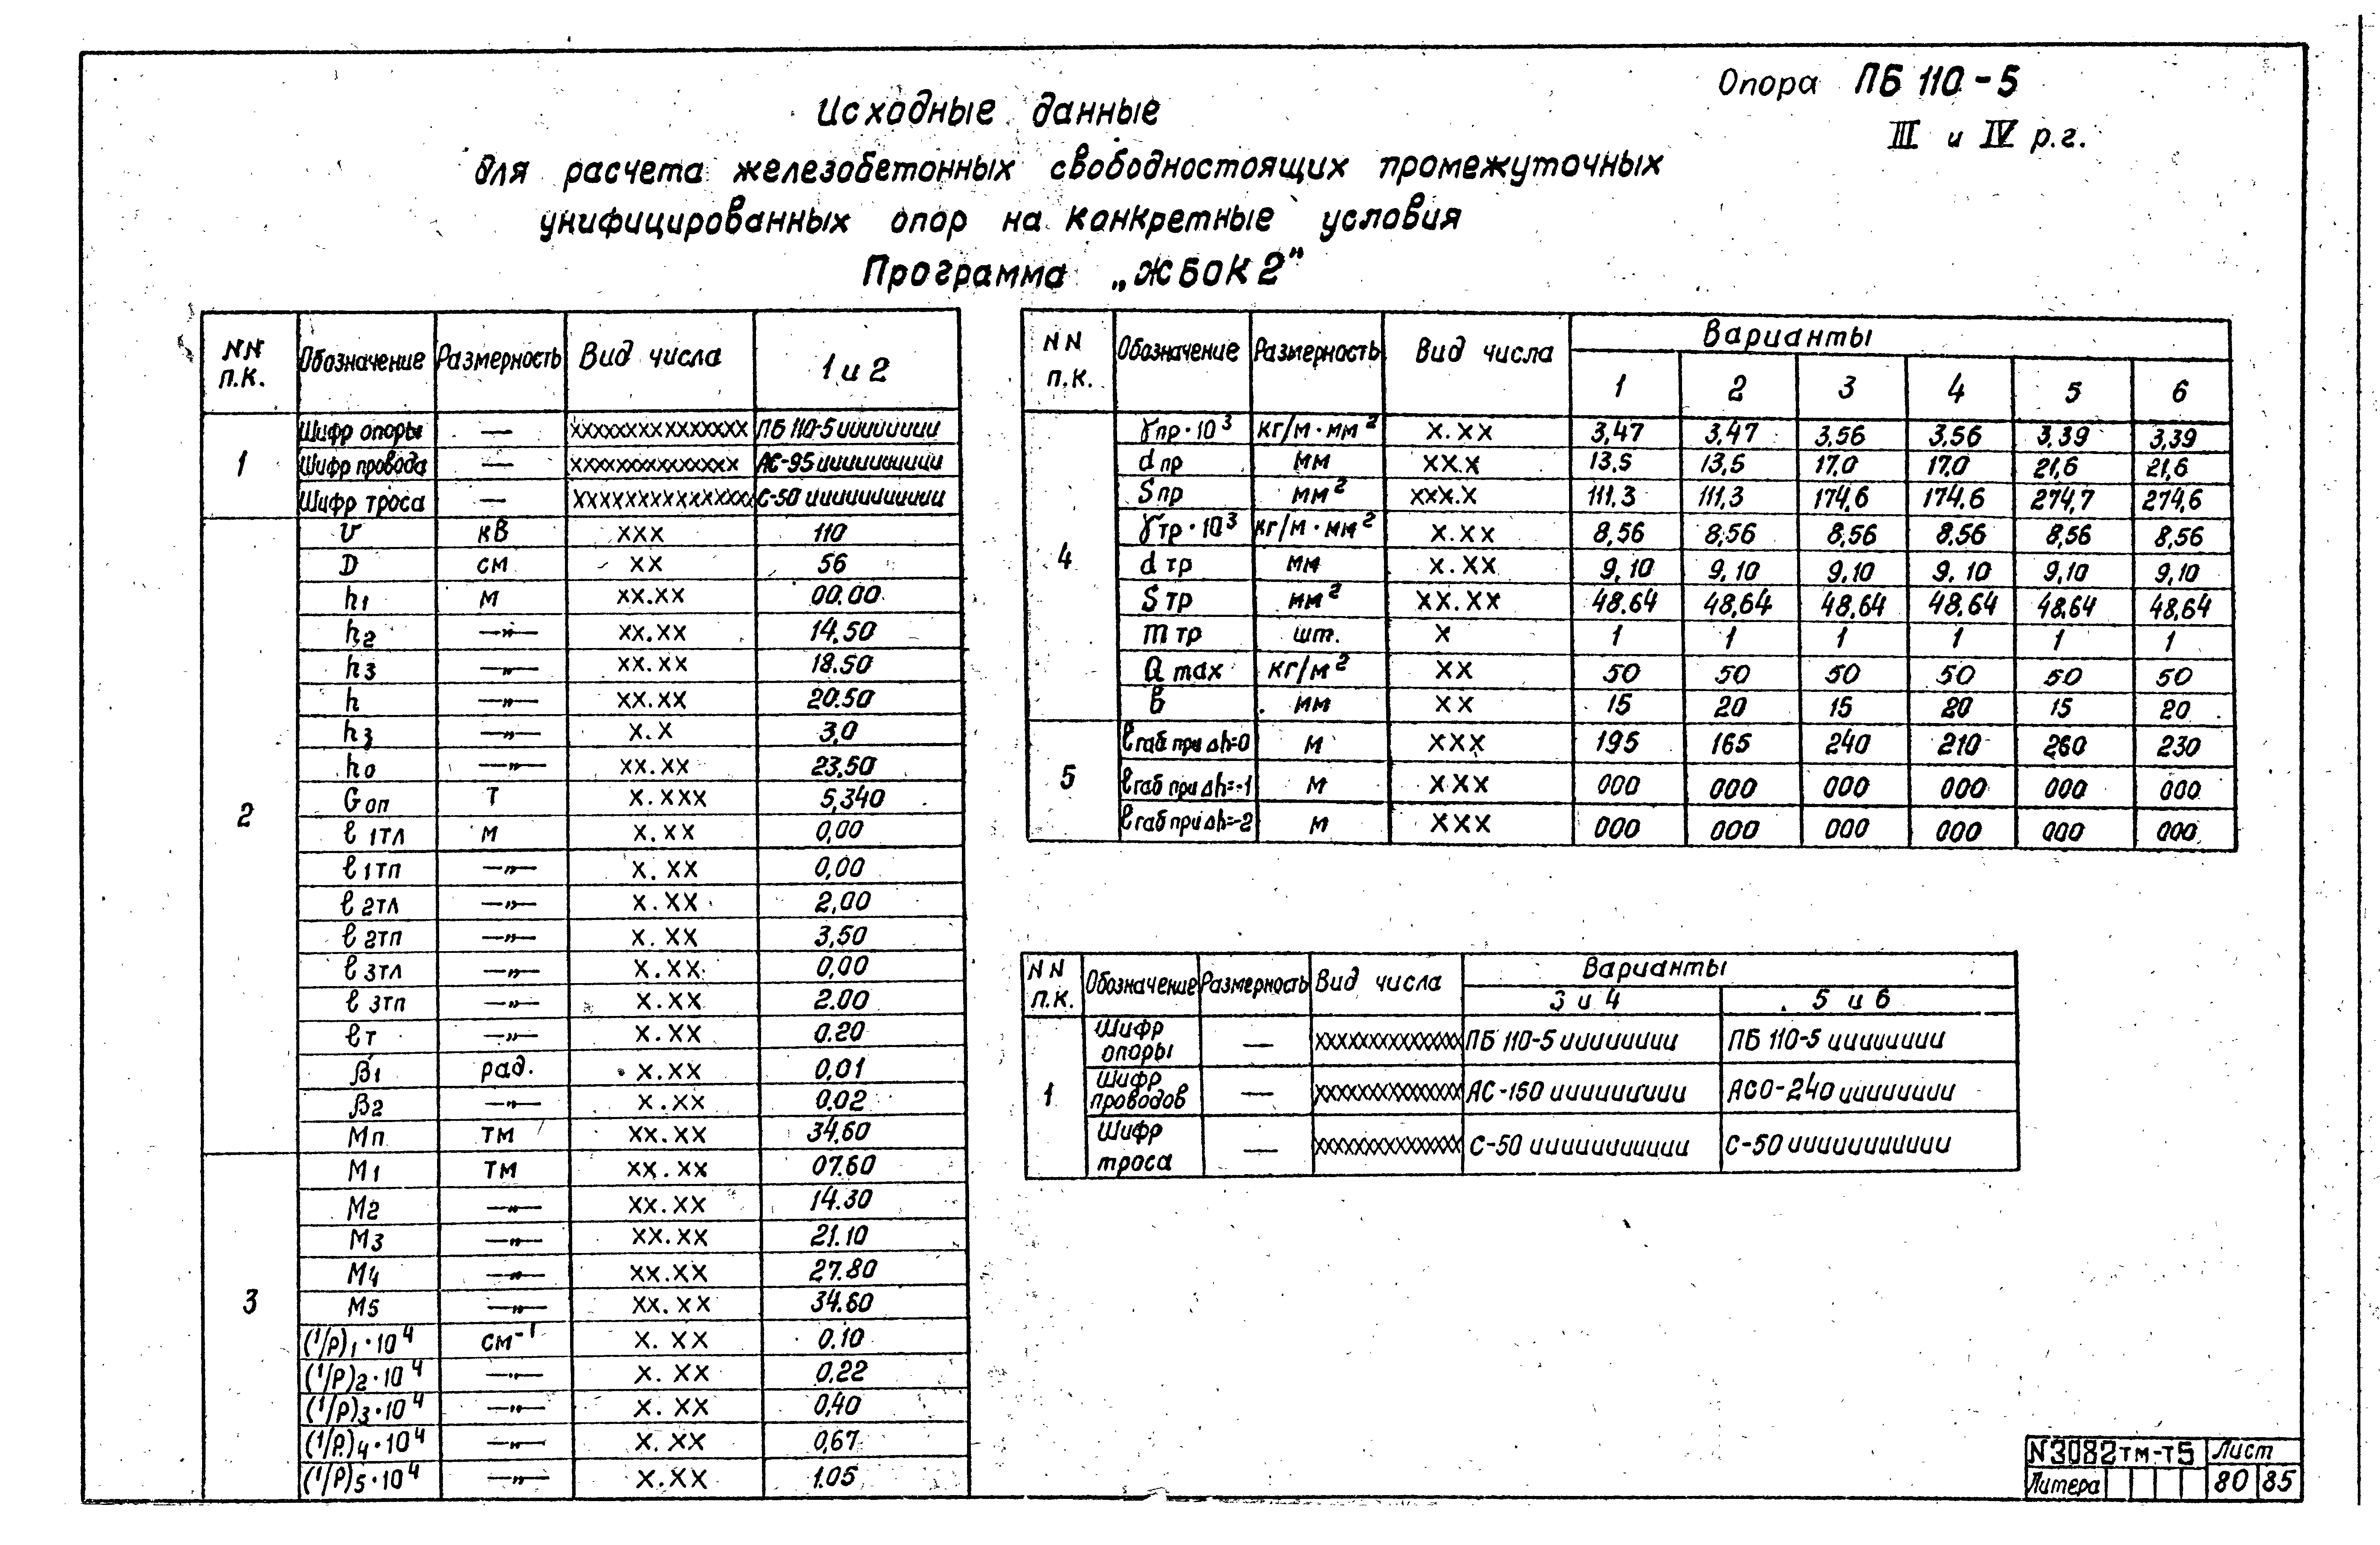 Опора ПБ 110-5
III и IV р.г.
Исходные данные
для расчета железобетонных свободностоящих промежуточных
унифицированных опор на конкретные условия
Программа „ЖБОК2"
NN п.к. Обозначение Размерность Вид числа 1 и 2
1 Шифр опоры — xxxxxxxxxxxxxxx ПБ 110-5 иииииииии
Шифр провода — xxxxxxxxxxxxxx АС-95 иииииииииии
Шифр троса — xxxxxxxxxxxxxxx С-50 ииииииииииии
2 U кВ xxx 110
D см xx 56
h1 м xx.xx 00.00
h2 —"— xx.xx 14.50
h3 —"— xx.xx 18.50
h —"— xx.xx 20.50
hз —"— x.x 3,0
h0 —"— xx.xx 23,50
Gоп Т x.xxx 5,340
ℓ 1тл м x.xx 0,00
ℓ 1тп —"— x.xx 0,00
ℓ 2тл —"— x.xx 2,00
ℓ 2тп —"— x.xx 3,50
ℓ 3тл —"— x.xx 0,00
ℓ 3тп —"— x.xx 2.00
ℓт —"— x.xx 0.20
β1 рад. x.xx 0,01
β2 —"— x.xx 0.02
Мп тм xx.xx 34,60
3 М1 тм xx.xx 07.60
М2 —"— xx.xx 14.30
М3 —"— xx.xx 21.10
М4 —"— xx.xx 27.80
М5 —"— xx.xx 34.60
(1/ρ)1·10⁴ см⁻¹ x.xx 0.10
(1/ρ)2·10⁴ —"— x.xx 0.22
(1/ρ)3·10⁴ —"— x.xx 0,40
(1/ρ)4·10⁴ —"— x.xx 0,67
(1/ρ)5·10⁴ —"— x.xx 1.05
NN п.к. Обозначение Размерность Вид числа Варианты
1 2 3 4 5 6
4 γпр·10³ кг/м·мм² x.xx 3,47 3,47 3,56 3,56 3,39 3,39
dпр мм xx.x 13,5 13,5 17,0 17,0 21,6 21,6
Sпр мм² xxx.x 111,3 111,3 174,6 174,6 274,7 274,6
γтр·10³ кг/м·мм² x.xx 8,56 8,56 8,56 8,56 8,56 8,56
dтр мм x.xx 9,10 9,10 9,10 9,10 9,10 9,10
Sтр мм² xx.xx 48,64 48,64 48,64 48,64 48,64 48,64
mтр шт. x 1 1 1 1 1 1
Qmax кг/м² xx 50 50 50 50 50 50
в мм xx 15 20 15 20 15 20
5 ℓгаб при Δh=0 м xxx 195 165 240 210 260 230
ℓгаб при Δh=-1 м xxx 000 000 000 000 000 000
ℓгаб при Δh=-2 м xxx 000 000 000 000 000 000
NN п.к. Обозначение Размерность Вид числа Варианты
3 и 4 5 и 6
1 Шифр опоры — xxxxxxxxxxxxxx ПБ 110-5 иииииииии ПБ 110-5 иииииииии
Шифр проводов — xxxxxxxxxxxxxx АС-150 ииииииииии АСО-240 ииииииииии
Шифр троса — xxxxxxxxxxxxxx С-50 ииииииииииии С-50 ииииииииииии
N3082тм-т5 Лист
Литера 80 85